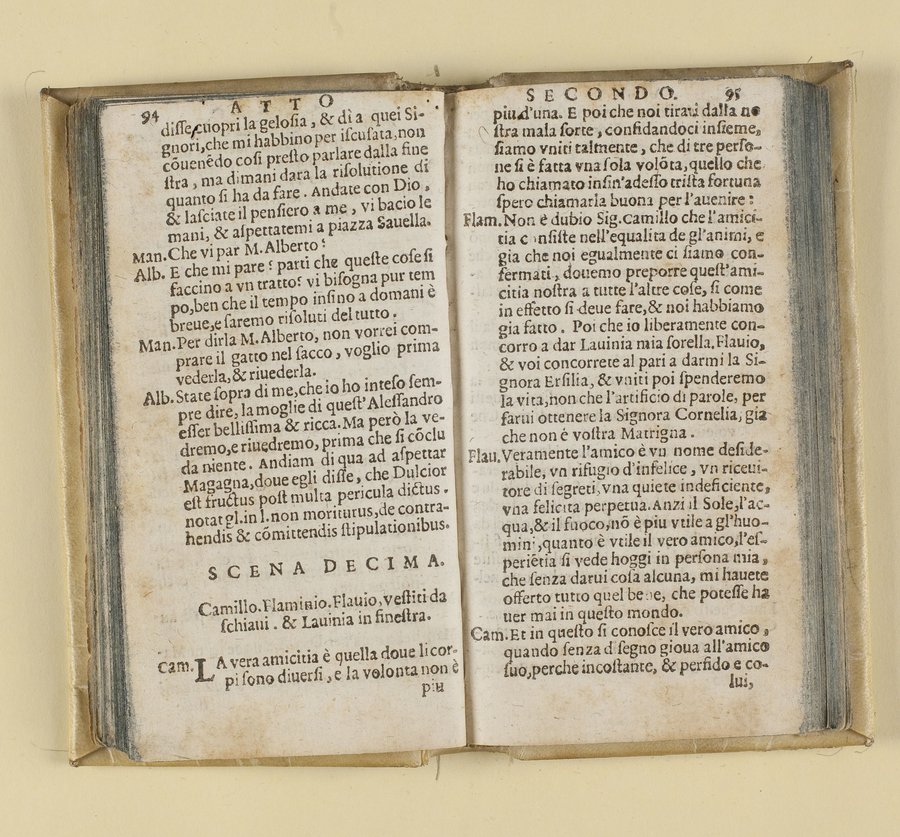 94 ATTO
disse, cuopri la gelosia, & dì a quei Si-
gnori, che mi habbino per iscusata, non
cōuenēdo cosi presto parlare dalla fine
stra, ma dimani dara la risolutione di
quanto si ha da fare. Andate con Dio,
& lasciate il pensiero a me, vi bacio le
mani, & aspettatemi a piazza Sauella.
Man. Che vi par M. Alberto?
Alb. E che mi pare? parti che queste cose si
faccino a vn tratto? vi bisogna pur tem
po, ben che il tempo infino a domani è
breue, e saremo risoluti del tutto.
Man. Per dirla M. Alberto, non vorrei com-
prare il gatto nel sacco, voglio prima
vederla, & riuederla.
Alb. State sopra di me, che io ho inteso sem-
pre dire, la moglie di quest'Alessandro
esser bellissima & ricca. Ma però la ve-
dremo, e riuedremo, prima che si cōclu
da niente. Andiam di qua ad aspettar
Magagna, doue egli disse, che Dulcior
est fructus post multa pericula dictus.
notat gl. in l. non moriturus, de contra-
hendis & cōmittendis stipulationibus.
SCENA DECIMA.
Camillo. Flaminio. Flauio, vestiti da
schiaui. & Lauinia in finestra.
Cam. LA vera amicitia è quella doue li cor-
pi sono diuersi, e la volonta non è
piu
SECONDO. 95
piu d'una. E poi che noi tirati dalla no
stra mala sorte, confidandoci insieme,
siamo vniti talmente, che di tre perso-
ne si è fatta vna sola volōta, quello che
ho chiamato insin'adesso trista fortuna
spero chiamarla buona per l'auenire:
Flam. Non è dubio Sig. Camillo che l'amici-
tia consiste nell'equalita de gl'animi, e
gia che noi egualmente ci siamo con-
fermati, douemo preporre quest'ami-
citia nostra a tutte l'altre cose, si come
in effetto si deue fare, & noi habbiamo
gia fatto. Poi che io liberamente con-
corro a dar Lauinia mia sorella. Flauio,
& voi concorrete al pari a darmi la Si-
gnora Ersilia, & vniti poi spenderemo
la vita, non che l'artificio di parole, per
farui ottenere la Signora Cornelia, gia
che non é vostra Matrigna.
Flau. Veramente l'amico è vn nome deside-
rabile, vn rifugio d'infelice, vn riceui-
tore di segreti, vna quiete indeficiente,
vna felicita perpetua. Anzi il Sole, l'ac-
qua, & il fuoco, nō è piu vtile a gl'huo-
mini, quanto è vtile il vero amico, l'es-
periētia si vede hoggi in persona mia,
che senza darui cosa alcuna, mi hauete
offerto tutto quel bene, che potesse ha
uer mai in questo mondo.
Cam. Et in questo si conosce il vero amico,
quando senza disegno gioua all'amico
suo, perche incostante, & perfido e co-
lui,